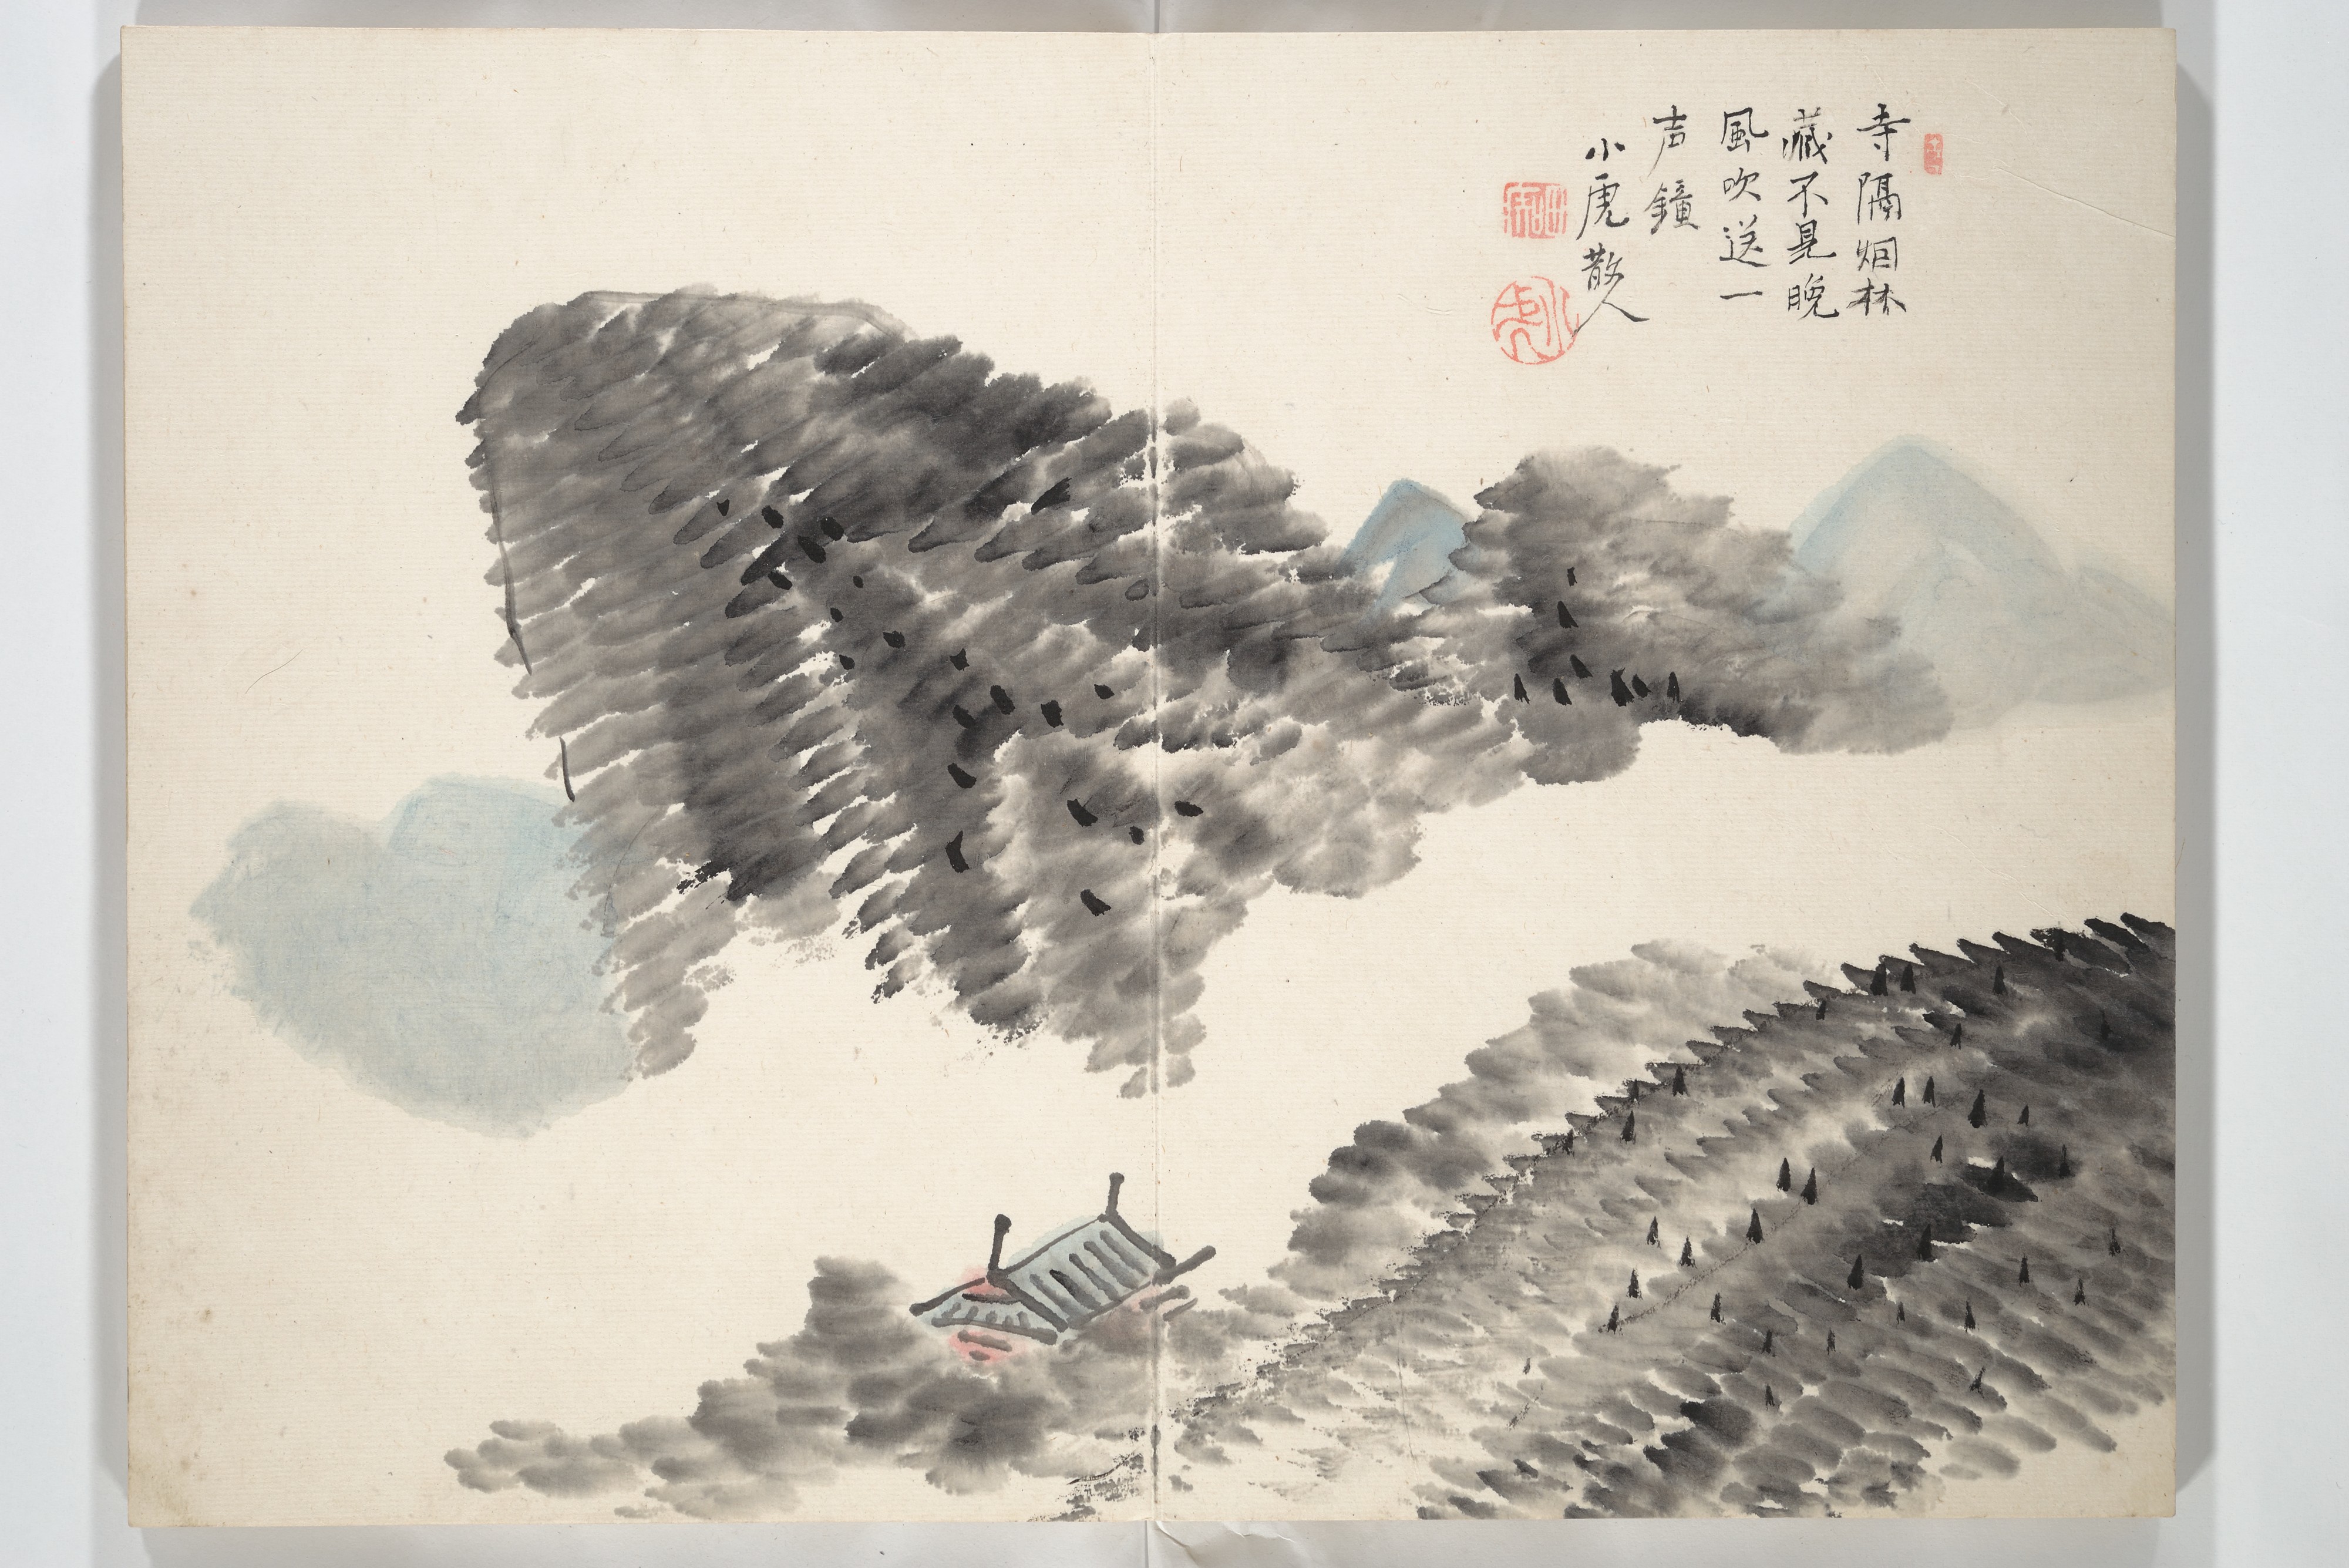 寺隔烟林
藏不見晩
風吹送一
声鐘
小虎散人